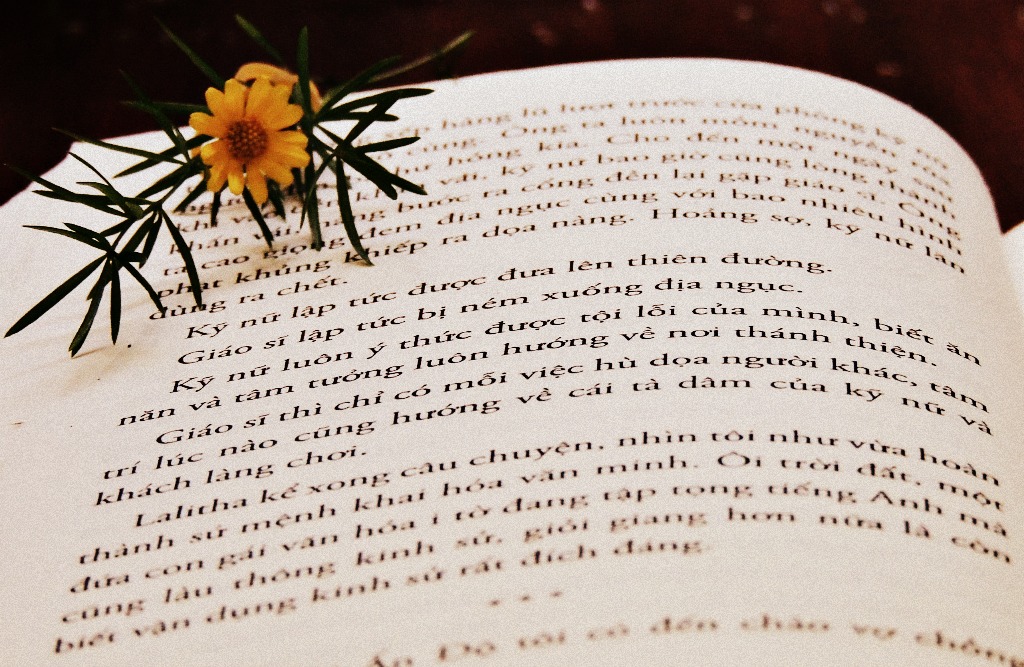 hàng là lượt trước cửa phòng kỹ nữ
cùng. Ông ta luôn mồm nguyền rủa
hồng kia. Cho đến một ngày, sau
vã, kỹ nữ bao giờ cũng lòng thành
bước ra cổng đền lại gặp giáo sĩ. Ông
ta cao giọng đem địa ngục cùng với bao nhiêu hình
phạt khủng khiếp ra dọa nàng. Hoảng sợ, kỹ nữ lăn
đùng ra chết.
Kỹ nữ lập tức được đưa lên thiên đường.
Giáo sĩ lập tức bị ném xuống địa ngục.
Kỹ nữ luôn ý thức được tội lỗi của mình, biết ăn
năn và tâm tưởng luôn hướng về nơi thánh thiện.
Giáo sĩ thì chỉ có mỗi việc hù dọa người khác, tâm
trí lúc nào cũng hướng về cái tà dâm của kỹ nữ và
khách làng chơi.
Lalitha kể xong câu chuyện, nhìn tôi như vừa hoàn
thành sứ mệnh khai hóa văn minh. Ôi trời đất, một
đứa con gái văn hóa i tờ đang tập tọng tiếng Anh mà
cũng làu thông kinh sử, giỏi giang hơn nữa là còn
biết vận dụng kinh sử rất đích đáng.
* * *
Ấn Độ tôi có đến chào vợ chồng